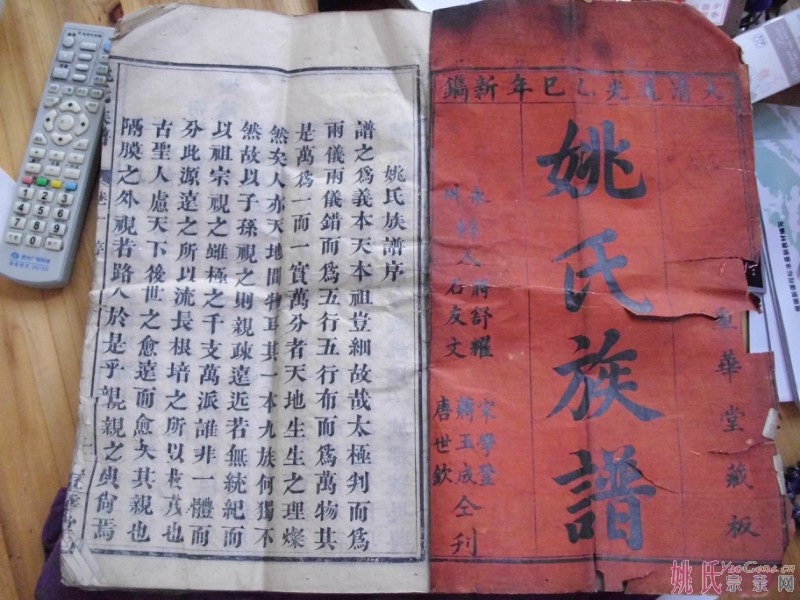 大清道光乙巳年新鐫
華堂藏板
姚氏族譜
蔣舒耀
石友文
蔣玉成
唐世欽
仝刊
姚氏族譜序
譜之爲義本天本祖豈細故哉太極判而爲
兩儀兩儀錯而爲五行五行布而爲萬物其
是萬爲一而一實萬分者天地生生之理燦
然矣人亦天地間物耳其一本九族何獨不
然故以子孫視之則親疎遠近若無統紀而
以祖宗視之雖極之千支萬派誰非一體而
分此源遠之所以流長根培之所以枝茂也
古聖人慮天下後世之愈遠而愈久其親也
隔膜之外視若路人於是乎親親之典尙焉
族譜
序
姚氏宗亲网
YaoGene.cn